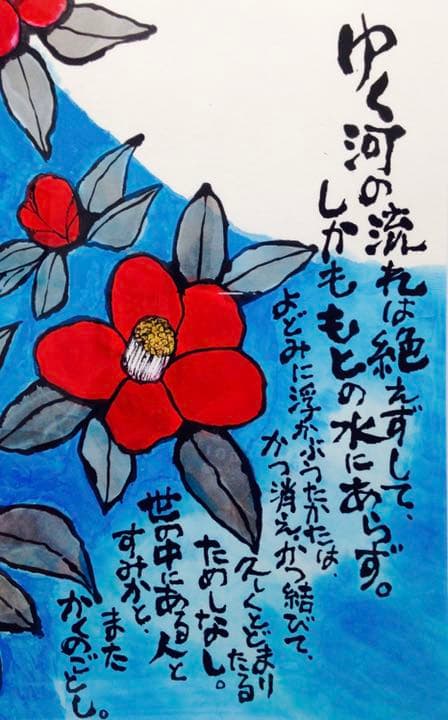 ゆく河の流れは絶えずして、
しかももとの水にあらず。
よどみに浮かぶうたかたは、
かつ消えかつ結びて、
久しくとどまり
たる
ためしなし。
世の中にある人と
すみかと、
また
かくのごとし。